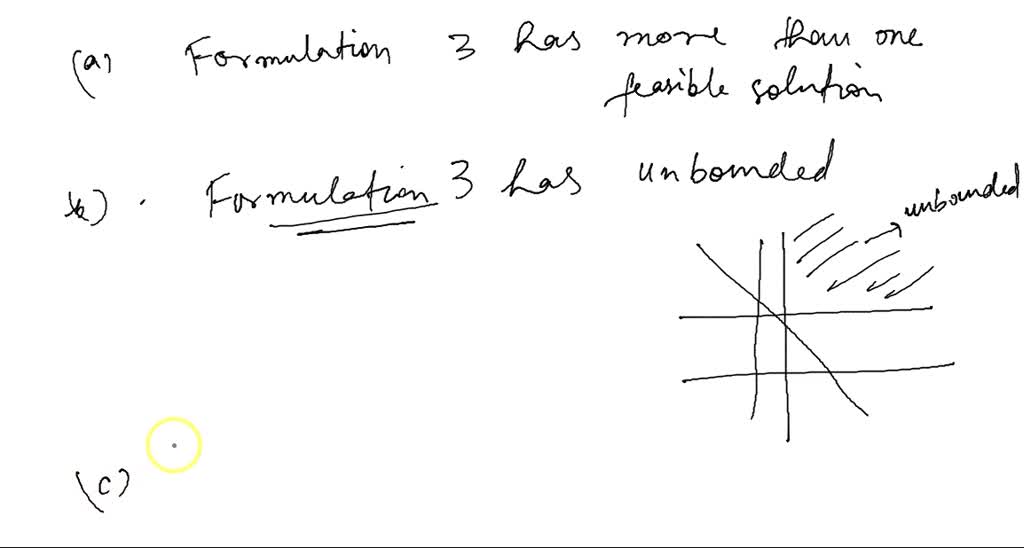 (a) Formulation 3 has more than one
feasible solution
b) . Formulation 3 has unbounded
unbounded
(c)